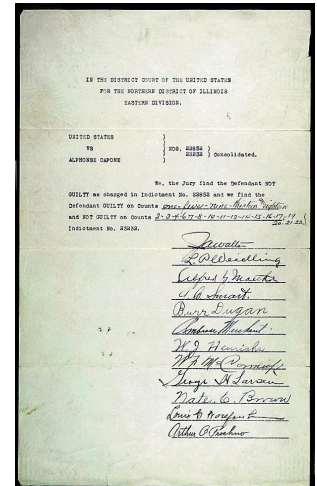 IN THE DISTRICT COURT OF THE UNITED STATES
FOR THE NORTHERN DISTRICT OF ILLINOIS
EASTERN DIVISION.
UNITED STATES )
VS ) NOS. 22852 ) Consolidated.
ALPHONSE CAPONE ) 23232 )
We, the Jury find the Defendant NOT
GUILTY as charged in Indictment No. 22852 and we find the
Defendant GUILTY on Counts one-five-nine-thirteen & eighteen
and NOT GUILTY on Counts 2-3-4-6-7-8-10-11-12-14-15-16-17-19
20-21-22
Indictment No. 23232.
L.P. Weidling
A.C. Smart
Burr Dugan
Ambrose Merchant
W.J. Hinrichs
W.F. McCormick
George H Larsen
Nate C. Brown
Louis
Arthur O. Prochno